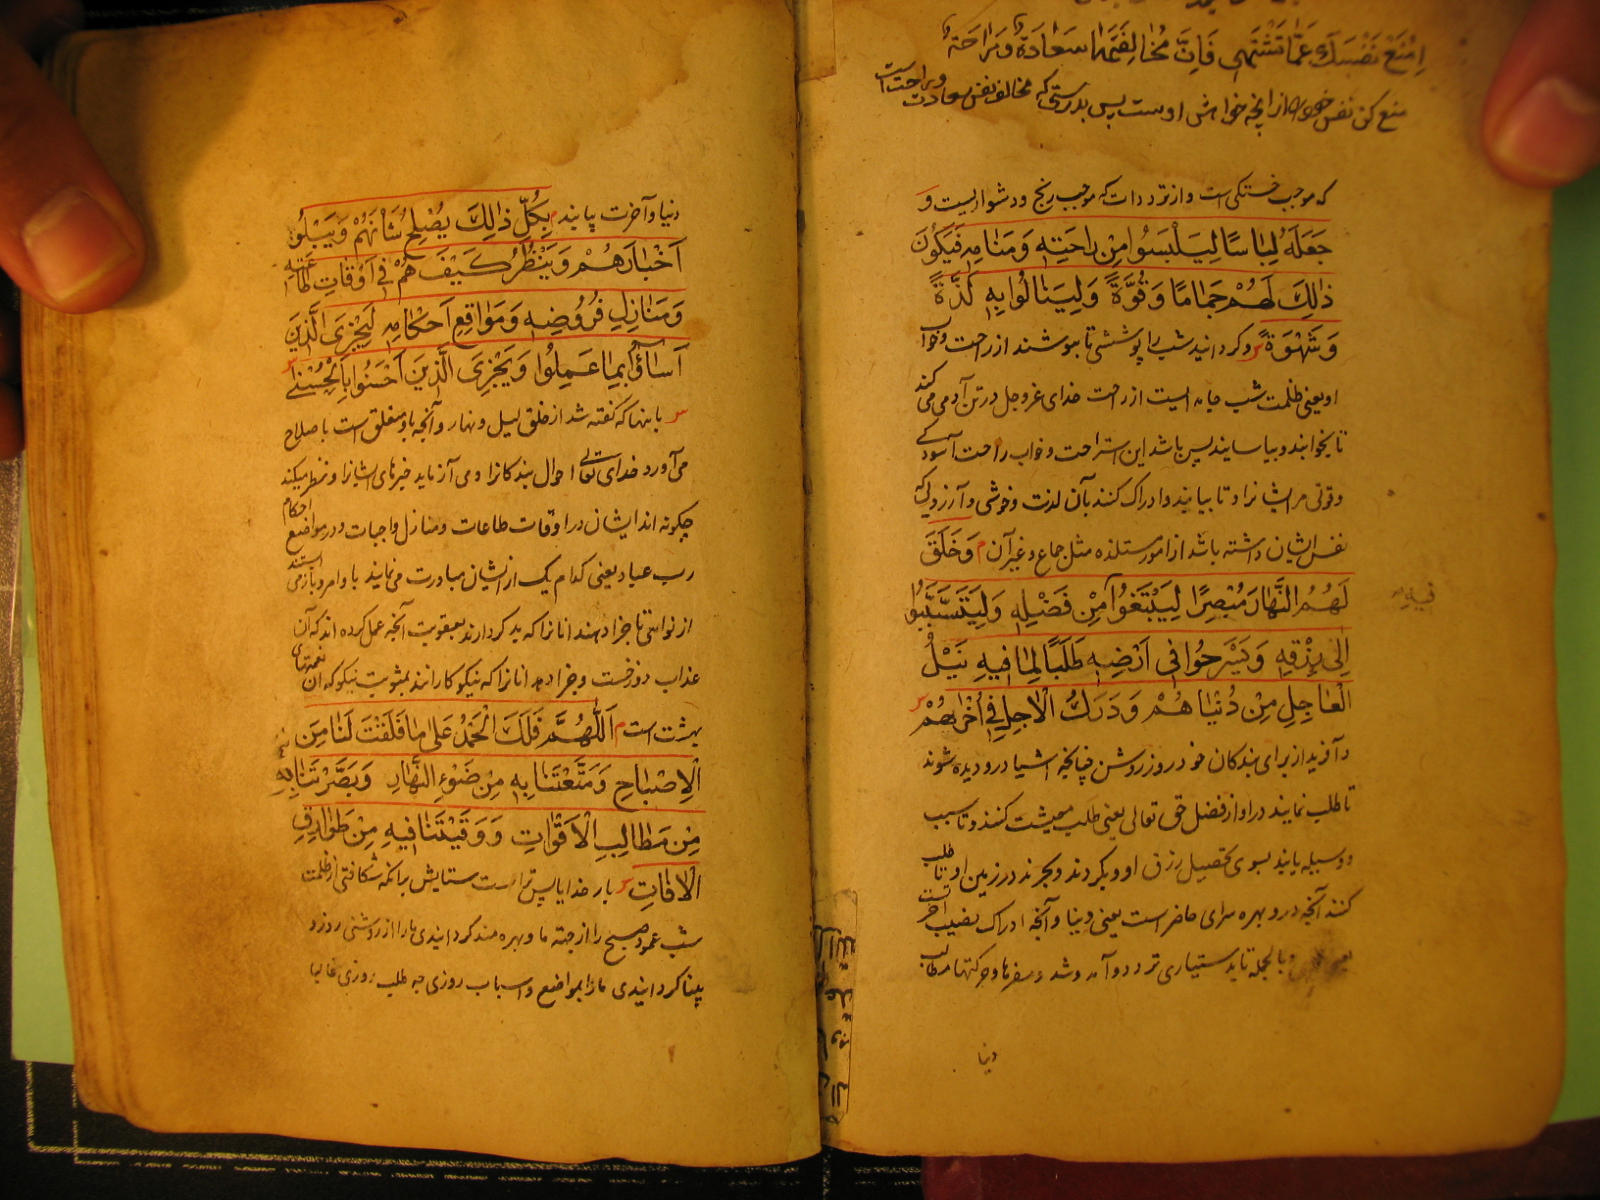 اِمْنَعْ نَفْسَكَ عَمَّا تَشْتَهِي فَاِنَّ مُخَالِفَتَهَا سَعَادَةٌ وَرَاحَةٌ
منع کن نفس خود را از آنچه خواهش اوست پس بدرستی که مخالف نفس سعادت و راحت است
که موجب خستگی است و از ترددات که موجب رنج و دشواریست و
جَعَلَهُ لِبَاسًا لِيَلْبَسُوا مِنْ رَاحَتِهِ وَمَنَامِهِ فَيَكُونَ
ذٰلِكَ لَهُمْ جَمَامًا وَقُوَّةً وَلِيَنَالُوا بِهِ لَذَّةً
وَشَهْوَةً و کردانید شب را پوششی تا بپوشند از راحت و خواب
او یعنی ظلمت شب جامه ایست از راحت خدای عزوجل در تن آدمی می کند
تا بخوابند و بیاسایند پس باشد این استراحت و خواب راحت آسودکی
و قوتی مر ایشانرا و تا بیابند و ادراک کنند بآن لذت و خوشی و آرزویی که
نفس ایشان داشته باشد از امور مستلذه مثل جماع و غیر آن م وَخَلَقَ
لَهُمُ النَّهَارَ مُبْصِرًا لِيَبْتَغُوا مِنْ فَضْلِهِ وَلِيَتَسَبَّبُوا
فيه
اِلٰى رِزْقِهِ وَيَسْرَحُوا فِي اَرْضِهِ طَلَبًا لِمَا فِيهِ نَيْلُ
الْعَاجِلِ مِنْ دُنْيَاهُمْ وَدَرَكُ الْاٰجِلِ فِي اُخْرٰيهُمْ
و آفرید از برای بندکان خود روز روشن چنانچه اشیا درو دیده شوند
تا طلب نمایند در او از فضل حق تعالی یعنی طلب معیشت کنند و تا سبب
و وسیله یابند بسوی تحصیل رزق او و بگردند و بچرند در زمین او تا طلب
کنند آنچه درو بهره سرای حاضر است یعنی دنیا و آنچه ادراک نصیب آخرتست
و بالجمله تا بدستیاری تردد و آمد و شد و سفرها و حرکتها مطالب
دنیا
دنیا و آخرت یابند م بِكُلِّ ذٰلِكَ يُصْلِحُ شَأْنَهُمْ وَيَبْلُو
اَخْبَارَهُمْ وَيَنْظُرُ كَيْفَ هُمْ فِي اَوْقَاتِ طَاعَتِهِ
وَمَنَازِلِ فُرُوضِهِ وَمَوَاقِعِ اَحْكَامِهِ لِيَجْزِيَ الَّذِينَ
اَسَاؤُا بِمَا عَمِلُوا وَيَجْزِيَ الَّذِينَ اَحْسَنُوا بِالْحُسْنٰى
باینها که گفته شد از خلق لیل و نهار و آنچه باو متعلق است باصلاح
می آورد خدای تعالی احوال بندکانرا و می آزماید خبرهای ایشانرا و نظر میکند
چکونه اند ایشان در اوقات طاعات و منازل واجبات و در مواضع احکام
رب عباد یعنی کدام یک از ایشان مبادرت می نمایند باوامر و باز می ایستند
از نواهی تا جزا دهند آنانرا که بد کردارند بعقوبت آنچه عمل کرده اند که آن
عذاب دوزخست و جزا دهد آنانرا که نیکو کارانند بمثوبت نیکو که آن نعمتهای
بهشت است م اَللّٰهُمَّ فَلَكَ الْحَمْدُ عَلٰى مَا فَلَقْتَ لَنَا مِنَ
الْاِصْبَاحِ وَمَتَّعْتَنَا بِهِ مِنْ ضَوْءِ النَّهَارِ وَبَصَّرْتَنَا بِهِ
مِنْ مَطَالِبِ الْاَقْوَاتِ وَوَقَيْتَنَا فِيهِ مِنْ طَوَارِقِ
الْاٰفَاتِ بار خدایا پس تراست ستایش بر آنکه شکافتی از ظلمت
شب عمود صبح را از جهته ما و بهره مند کردانیدی ما را از روشنی روز و
بینا کردانیدی ما را بمواضع و اسباب روزی جه طلب روزی غالبا